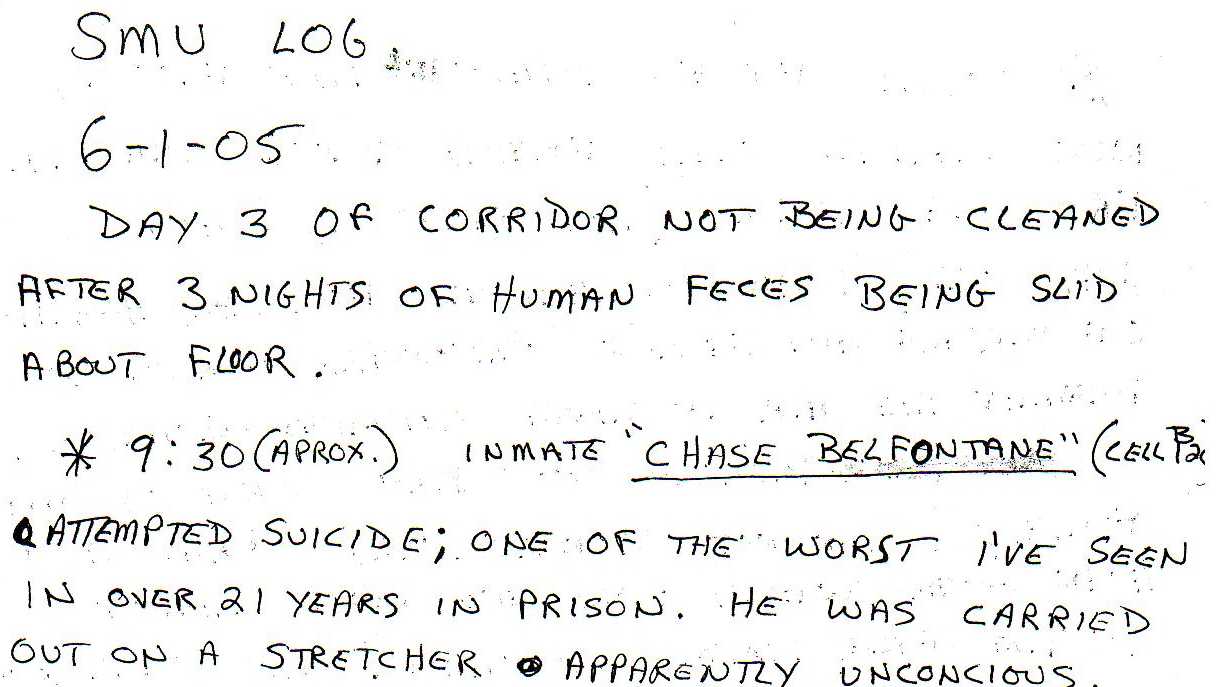 SMU LOG
6-1-05
DAY 3 OF CORRIDOR NOT BEING CLEANED
AFTER 3 NIGHTS OF HUMAN FECES BEING SLID
ABOUT FLOOR.
* 9:30 (APROX.) INMATE "CHASE BELFONTANE" (CELL
ATTEMPTED SUICIDE; ONE OF THE WORST I'VE SEEN
IN OVER 21 YEARS IN PRISON. HE WAS CARRIED
OUT ON A STRETCHER APPARENTLY UNCONCIOUS.